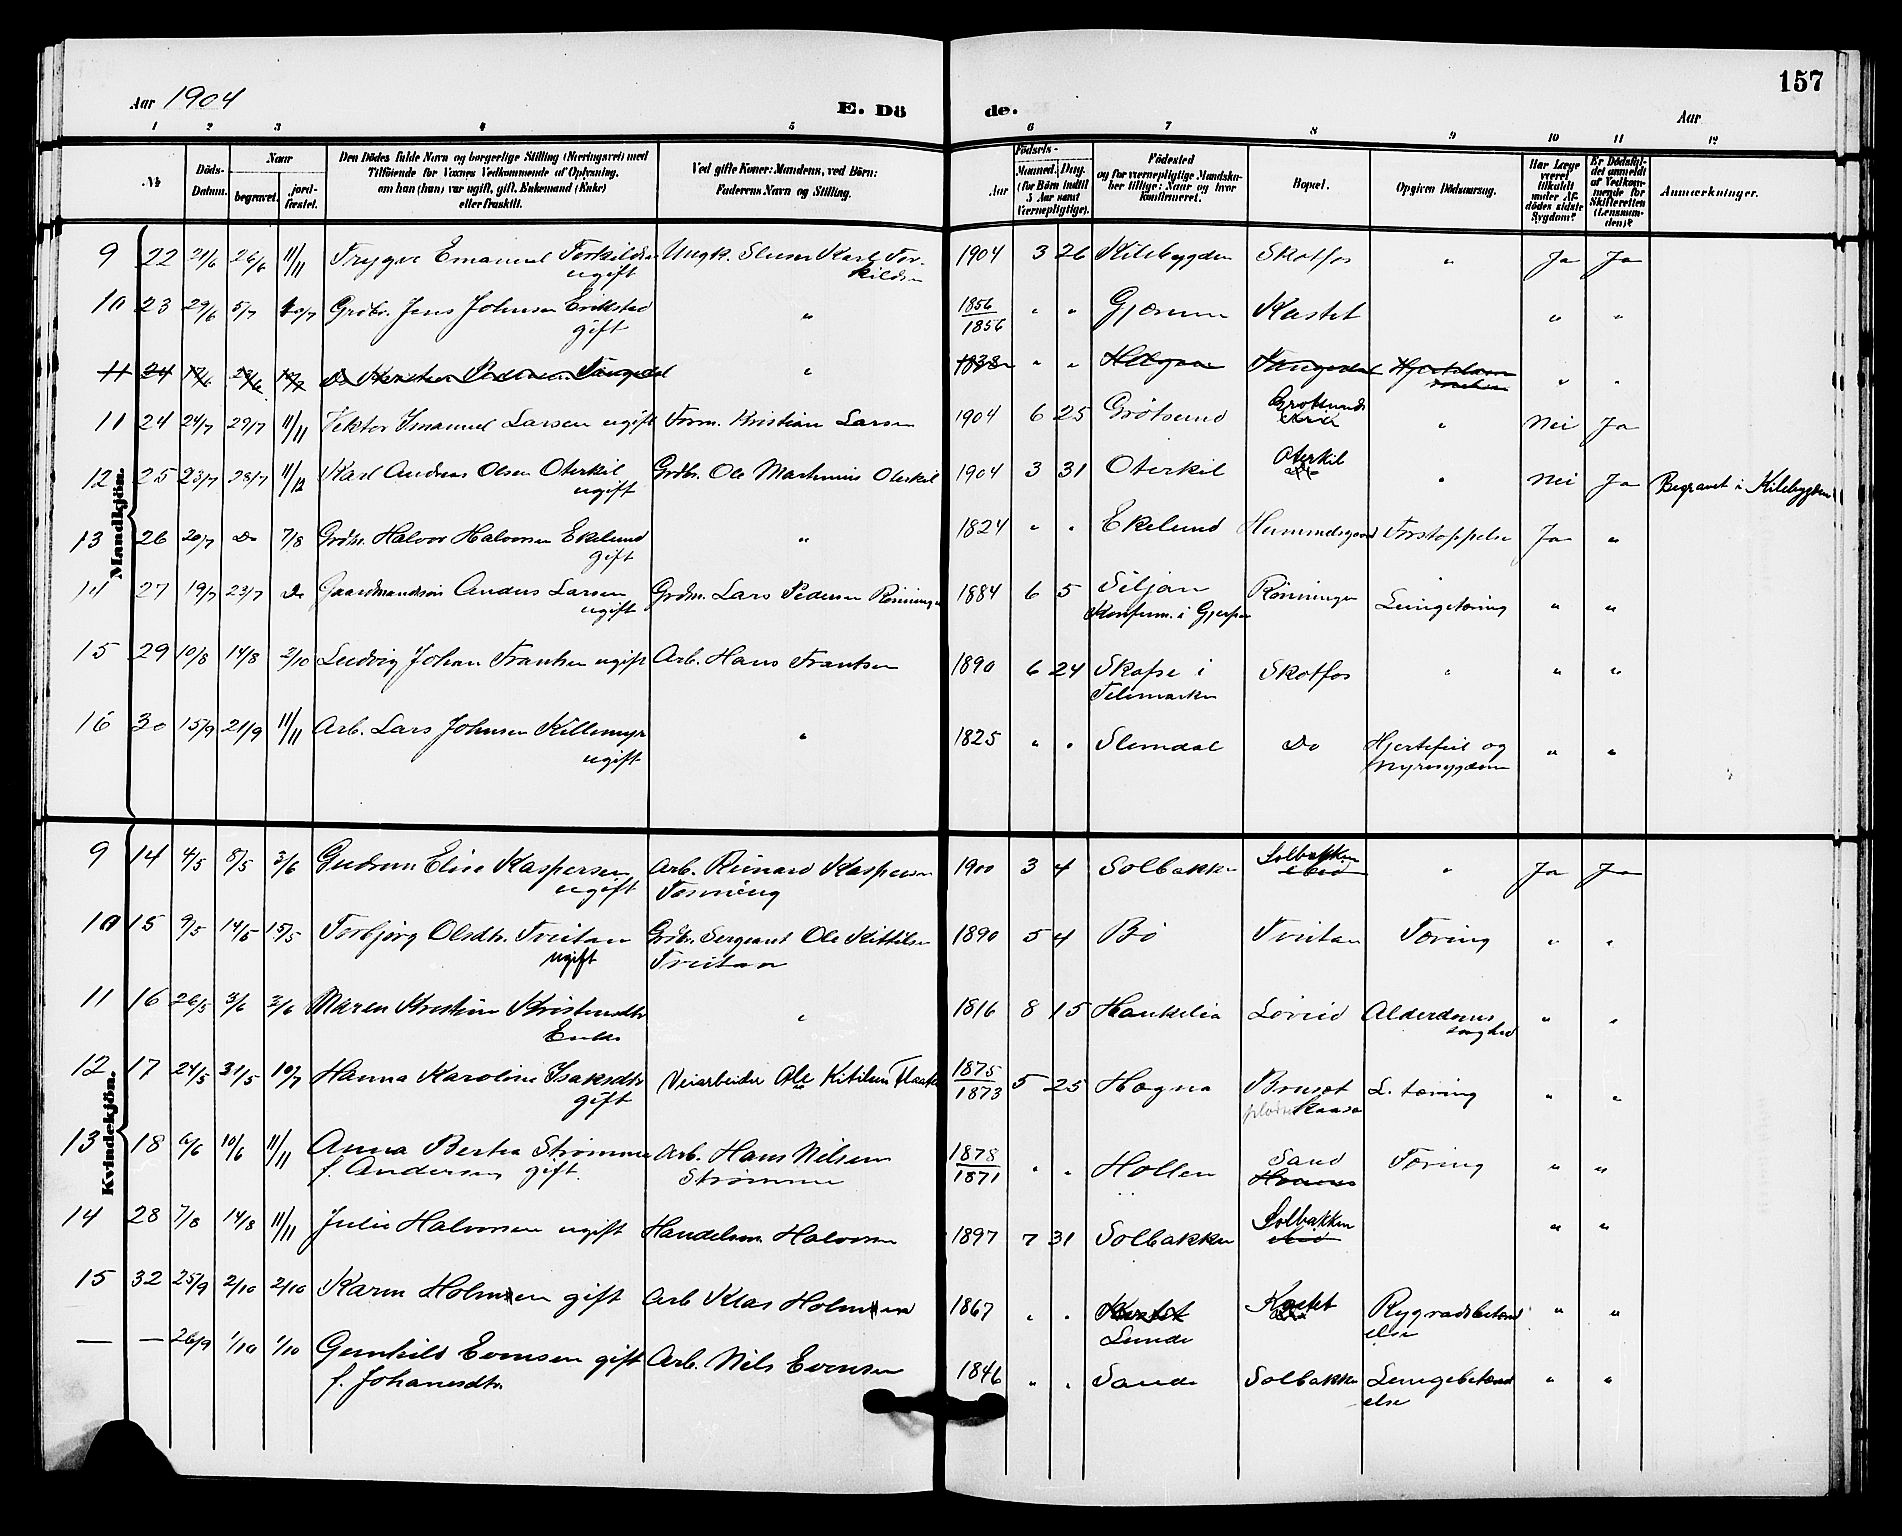 157
Aar 1904
E. Dö de.
Aar
1 2 3 4 5 6 7 8 9 10 11 12
№
Döds-Datum.
Naar
begravet.
jord-fæstet.
Den Dödes fulde Navn og borgerlige Stilling (Næringsvei) med
Tilföiende for Voxnes Vedkommende af Oplysning,
om han (hun) var ugift, gift, Enkemand (Enke)
eller fraskilt.
Ved gifte Koner: Mandens, ved Börn:
Faderens Navn og Stilling.
Födsels-
Aar
Maaned. Dag.
(for Börn indtil
5 Aar samt
Værnepligtige).
Födested
og for værnepligtige Mandska-
ber tillige: Naar og hvor
konfirmeret.
Bopæl.
Opgiven Dödsaarsag.
Har Læge
været
tilkaldt
under Af-
dödes sidste
Sygdom?
Er Dödsfal-
det anmeldt
af Vedkom-
mende for
Skifteretten
(Lensman-
den)?
Anmærkninger.
Mandkjön.
9 22 21/6 26/6 11/11 Trygve Emanuel Torkildsen Ungk. Sluser Karl Tor- 1904 3 26 Kilebygden Skotfos " Ja Ja
ugift kildsen
10 23 29/6 5/7 10/7 Grdbr. Jens Johnsen Erikstad " 1856 " " Gjerum Kastet " "
gift 1856
11 24 " 1838 " " Hjertelam- " "
11 24 24/7 29/7 11/11 Viktor Imanuel Larsen ugift Form. Kristian Larsen 1904 6 25 Grötsund Grötsund " Nei Ja
12 25 23/7 28/7 11/12 Karl Andreas Olsen Oterkil Grdbr. Ole Marthinius Oterkil 1904 3 31 Oterkil Oterkil " Nei Ja Begravet i Kilebygden
ugift
13 26 20/7 Do 7/8 Grdbr. Halvor Halvorsen Ekelund " 1824 " " Ekelund Hummelsgaard Forstoppelse Ja "
gift
14 27 19/7 23/7 Do Gaardmandssön Anders Larsen Grdbr. Lars Pedersen Rönningen 1884 6 5 Siljan Rönningen Lungetæring " "
ugift Konfirm. i Gjerpen
15 29 10/8 14/8 2/10 Ludvig Johan Frantsen ugift Arb. Hans Frantsen 1890 6 24 Skafse i Skotfos " " "
Telemarken
16 30 15/9 21/9 11/11 Arb. Lars Johnsen Killemyr " 1825 " " Slemdal Do Hjertefeil og " "
ugift Nyresygdom
Kvindekjön.
9 14 4/5 8/5 3/6 Gudrun Elise Kaspersen Arb. Reinard Kaspersen 1900 3 4 Solbakken Solbakken " Ja Ja
ugift
10 15 9/5 14/5 15/5 Torbjørg Olsdtr. Tveitan Grdbr. Sergeant Ole Kittilsen 1890 5 4 Bö Tveitan Tæring " "
ugift Tveitan
11 16 26/5 3/6 3/6 Maren Kirstine Kristensdtr " 1816 8 15 Haukelia Löveid Alderdoms- " "
Enke svaghed
12 17 24/5 31/5 10/7 Hanna Karoline Isaksdtr Veiarbeider Ole Kitilsen Flaate 1875 5 25 Hogna Bruset L. tæring " "
gift 1873 Kaasa
13 18 6/6 10/6 11/11 Anna Bertea Strömmen Arb. Hans Nilsen 1878 " " Hollen Sand Tæring " "
f. Andersen gift. Strömmen 1871
14 28 7/8 14/8 11/11 Julie Halvorsen ugift Handelsm. Halvorsen 1897 7 31 Solbakken Solbakken " "
15 32 25/9 2/10 2/10 Karen Holmen gift Arb Klas Holmen 1867 " " Kastet Rygradsbetænd- " "
Lunde else
— — 26/9 1/10 1/10 Gunhild Evensen gift Arb. Nils Evensen 1846 " " Sande Solbakken Lungebetænd- " "
f. Johanesdtr. else